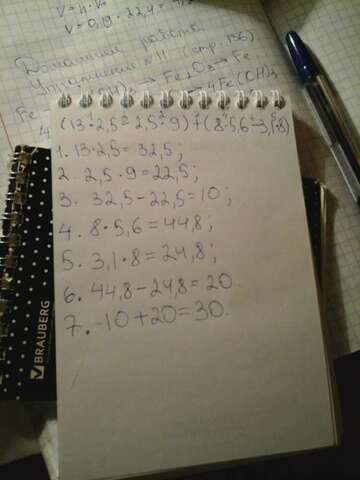 V = n · V
V = 0,19 · 22,4 =
Домашняя работа
Упражнение №11 (стр. 156)
Fe → Fe₂O₃ → Fe
Fe(OH)₃
(13·2,5 - 2,5·9) + (8·5,6 - 3,1·8)
1. 13·2,5 = 32,5;
2. 2,5·9 = 22,5;
3. 32,5 - 22,5 = 10;
4. 8·5,6 = 44,8;
5. 3,1·8 = 24,8;
6. 44,8 - 24,8 = 20.
7. 10 + 20 = 30.
BRAUBERG